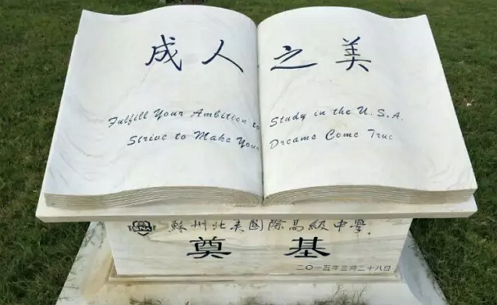 成人之美
Fulfill Your Ambition to Study in the U.S.A.
Strive to Make Your Dreams Come True
蘇州北美國際高級中學
奠基
二〇一五年三月二十八日